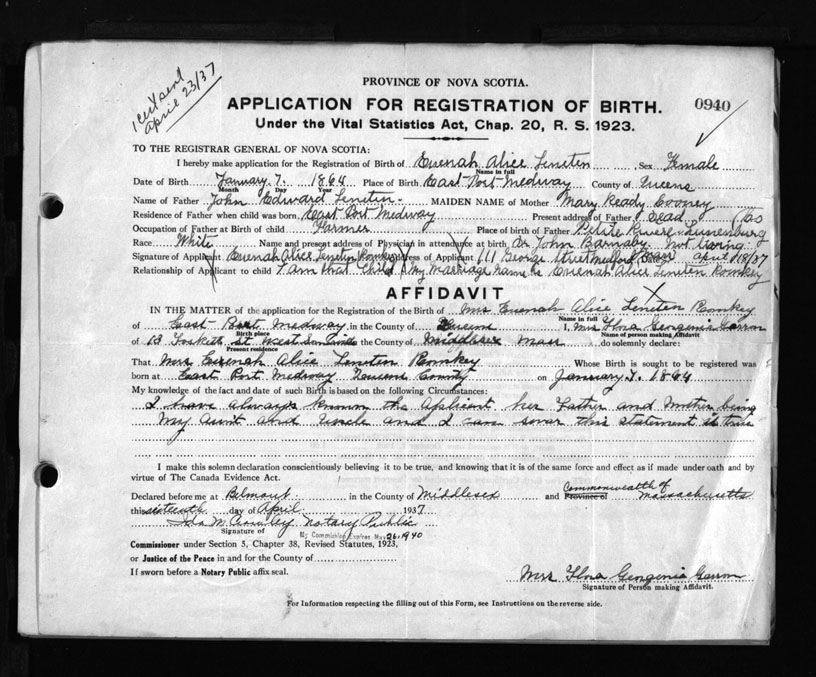 1 Cert sent
april 23/37
PROVINCE OF NOVA SCOTIA.
APPLICATION FOR REGISTRATION OF BIRTH. 0940
Under the Vital Statistics Act, Chap. 20, R. S. 1923.
TO THE REGISTRAR GENERAL OF NOVA SCOTIA:
I hereby make application for the Registration of Birth of Euenah Alice Leneten Sex Female
Name in full
Date of Birth January 7. 1864 Place of Birth East Port Medway County of Queens
Month Day Year
Name of Father John Edward Leneten MAIDEN NAME of Mother Mary Ready Cooney
Residence of Father when child was born East Port Medway Present address of Father Dead
Occupation of Father at Birth of child Farmer Place of birth of Father Petite Riviere Lunenburg Co
Race White Name and present address of Physician in attendance at birth Dr John Barnaby Not living
Signature of Applicant Euenah Alice Leneten Romkey Address of Applicant 111 George Street Medford Mass april 18/37
Relationship of Applicant to child I am that Child My marriage name is Euenah Alice Leneten Romkey
AFFIDAVIT
IN THE MATTER of the application for the Registration of the Birth of Mrs Euenah Alice Leneten Romkey
Name in full
of East Port Medway in the County of Queens I, Mrs Flora Georgenia
Birth place Name of person making Affidavit
of 13 St West the County of Middlesex Mass do solemnly declare:
Present residence
That Mrs Euenah Alice Leneten Romkey Whose Birth is sought to be registered was
born at East Port Medway Queens County on January 7. 1864
My knowledge of the fact and date of such Birth is based on the following Circumstances:
I have always known the applicant her Father and Mother being
my Aunt and Uncle and I can swear this statement is true
I make this solemn declaration conscientiously believing it to be true, and knowing that it is of the same force and effect as if made under oath and by
virtue of The Canada Evidence Act.
Commonwealth of
Declared before me at Belmont in the County of Middlesex and Province of Massachusetts
this sixteenth day of April 1937
Notary Public
Signature of My Commission Expires 26. 1940
Commissioner under Section 5, Chapter 38, Revised Statutes, 1923,
or Justice of the Peace in and for the County of
If sworn before a Notary Public affix seal.
Mrs Flora Georgenia
Signature of Person making Affidavit.
For Information respecting the filling out of this Form, see Instructions on the reverse side.